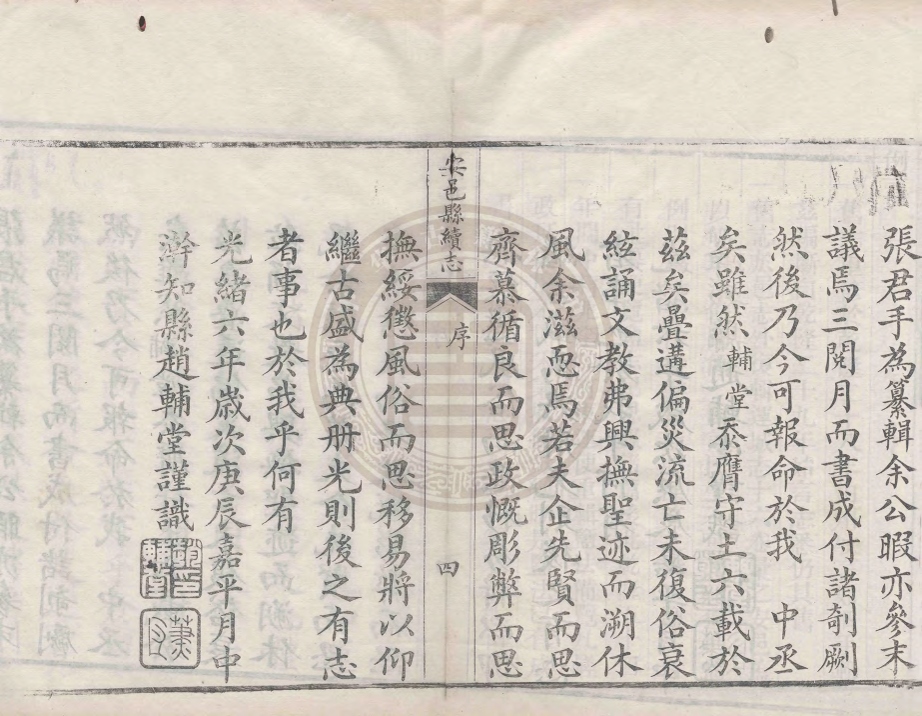 張君手為纂輯余公暇亦參末
議焉三閱月而書成付諸剞劂
然後乃今可報命於我 中丞
矣雖然輔堂忝膺守土六載於
茲矣疊遘偏災流亡未復俗衰
絃誦文教弗興撫聖迹而溯休
風余滋恧焉若夫企先賢而思
齊慕循良而思政慨彫弊而思
安邑縣續志
序
四
撫綏懲風俗而思移易將以仰
繼古盛為典册光則後之有志
者事也於我乎何有
光緒六年歲次庚辰嘉平月中
澣知縣趙輔堂謹識